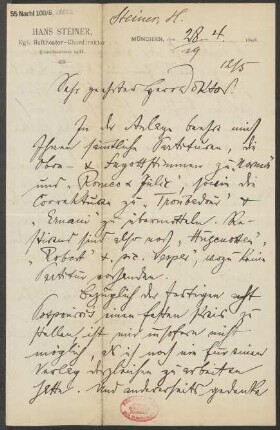 SS Nachl 100/B,
Steiner, H.
HANS STEINER,
Kgl. Hoftheater-Chordirektor
MÜNCHEN, den 28. 189
12/5
Sehr geehrter Herr Doktor!
In der Anlage beehre mich
Ihnen sämtliche Partituren, die
Oboe- & Fagottstimmen zu "Norma"
und "Romeo & Julie", sowie die
Correkturen zu "Troubadour" &
"Ernani" zu übermitteln.
sind also noch "Hugenotten"
"Robert" & sic. Vesper, wozu keine
Partitur vorhanden.
Bezüglich des fertigen
einen festen Preis zu
stellen ist mir insofern nicht
möglich, als ich noch nie für einen
Verlag dergleichen zu arbeiten
hatte. Und andererseits gedenke